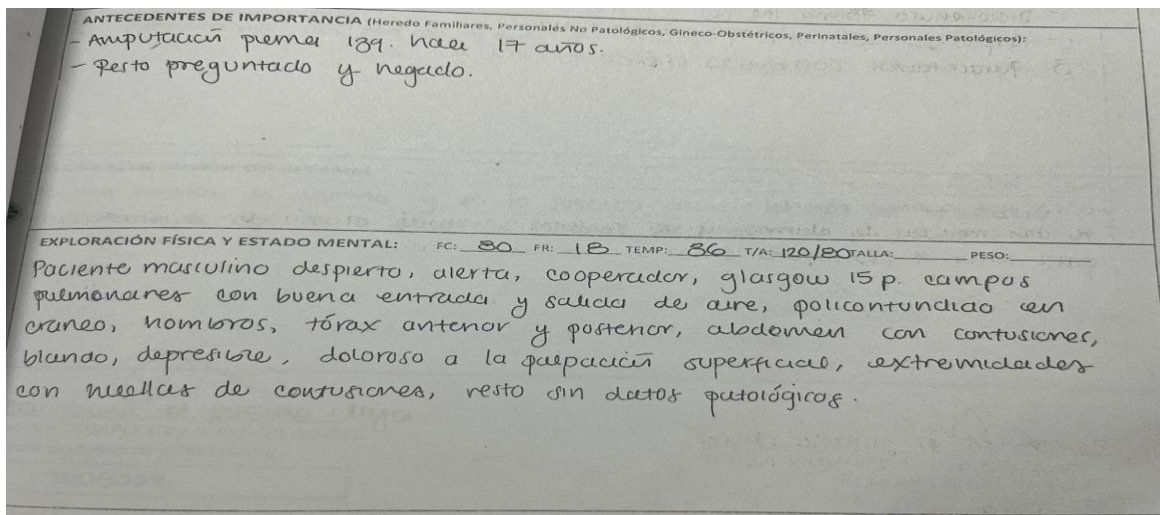 ANTECEDENTES DE IMPORTANCIA (Heredo Familiares, Personales No Patológicos, Gineco-Obstétricos, Perinatales, Personales Patológicos):
- Amputación pierna izq. hace 17 años.
- Resto preguntado y negado.
EXPLORACIÓN FÍSICA Y ESTADO MENTAL: FC: 80 FR: 18 TEMP: 36 T/A: 120/80 TALLA: PESO:
Paciente masculino despierto, alerta, cooperador, glasgow 15 p. campos
pulmonares con buena entrada y salida de aire, policontundido en
craneo, hombros, tórax anterior y posterior, abdomen con contusiones,
blando, depresible, doloroso a la palpación superficial, extremidades
con huellas de contusiones, resto sin datos patológicos.